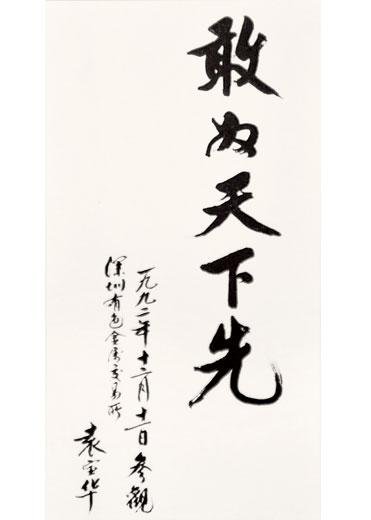 敢为天下先
一九九二年十二月十二日参觀
深圳有色金属交易所
袁宝华